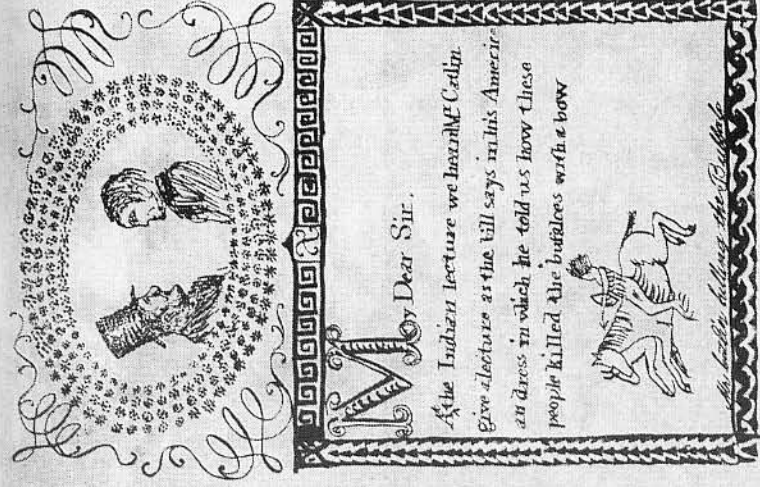 My Dear Sir.
At the Indian lecture we heard Mr Catlin
give a lecture as the bill says in his Americ
an dress in which he told us how these
people killed the bufaloes with a bow
Mr Catlin killing the Buffalo